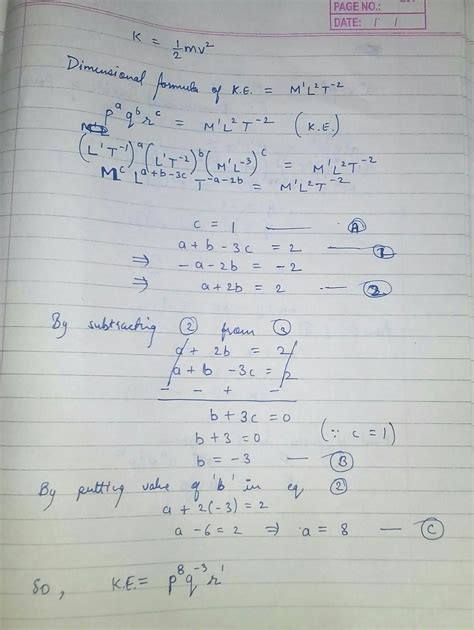 PAGE NO.:
DATE: / /
K = 1/2 mv²
Dimensional formula of K.E. = M¹L²T⁻²
pᵃqᵇrᶜ = M¹L²T⁻² (K.E.)
(L¹T⁻¹)ᵃ(L¹T⁻²)ᵇ(M¹L⁻³)ᶜ = M¹L²T⁻²
Mᶜ Lᵃ⁺ᵇ⁻³ᶜ T⁻ᵃ⁻²ᵇ = M¹L²T⁻²
c = 1 — Ⓐ
a + b - 3c = 2 — ①
⇒ -a - 2b = -2
⇒ a + 2b = 2 — ②
By subtracting ② from
a + 2b = 2
a + b - 3c = 2
- - + -
b + 3c = 0
b + 3 = 0 (∵ c = 1)
b = -3 — Ⓑ
By putting value of 'b' in eq ②
a + 2(-3) = 2
a - 6 = 2 ⇒ a = 8 — Ⓒ
So, K.E. = p⁸q⁻³r¹